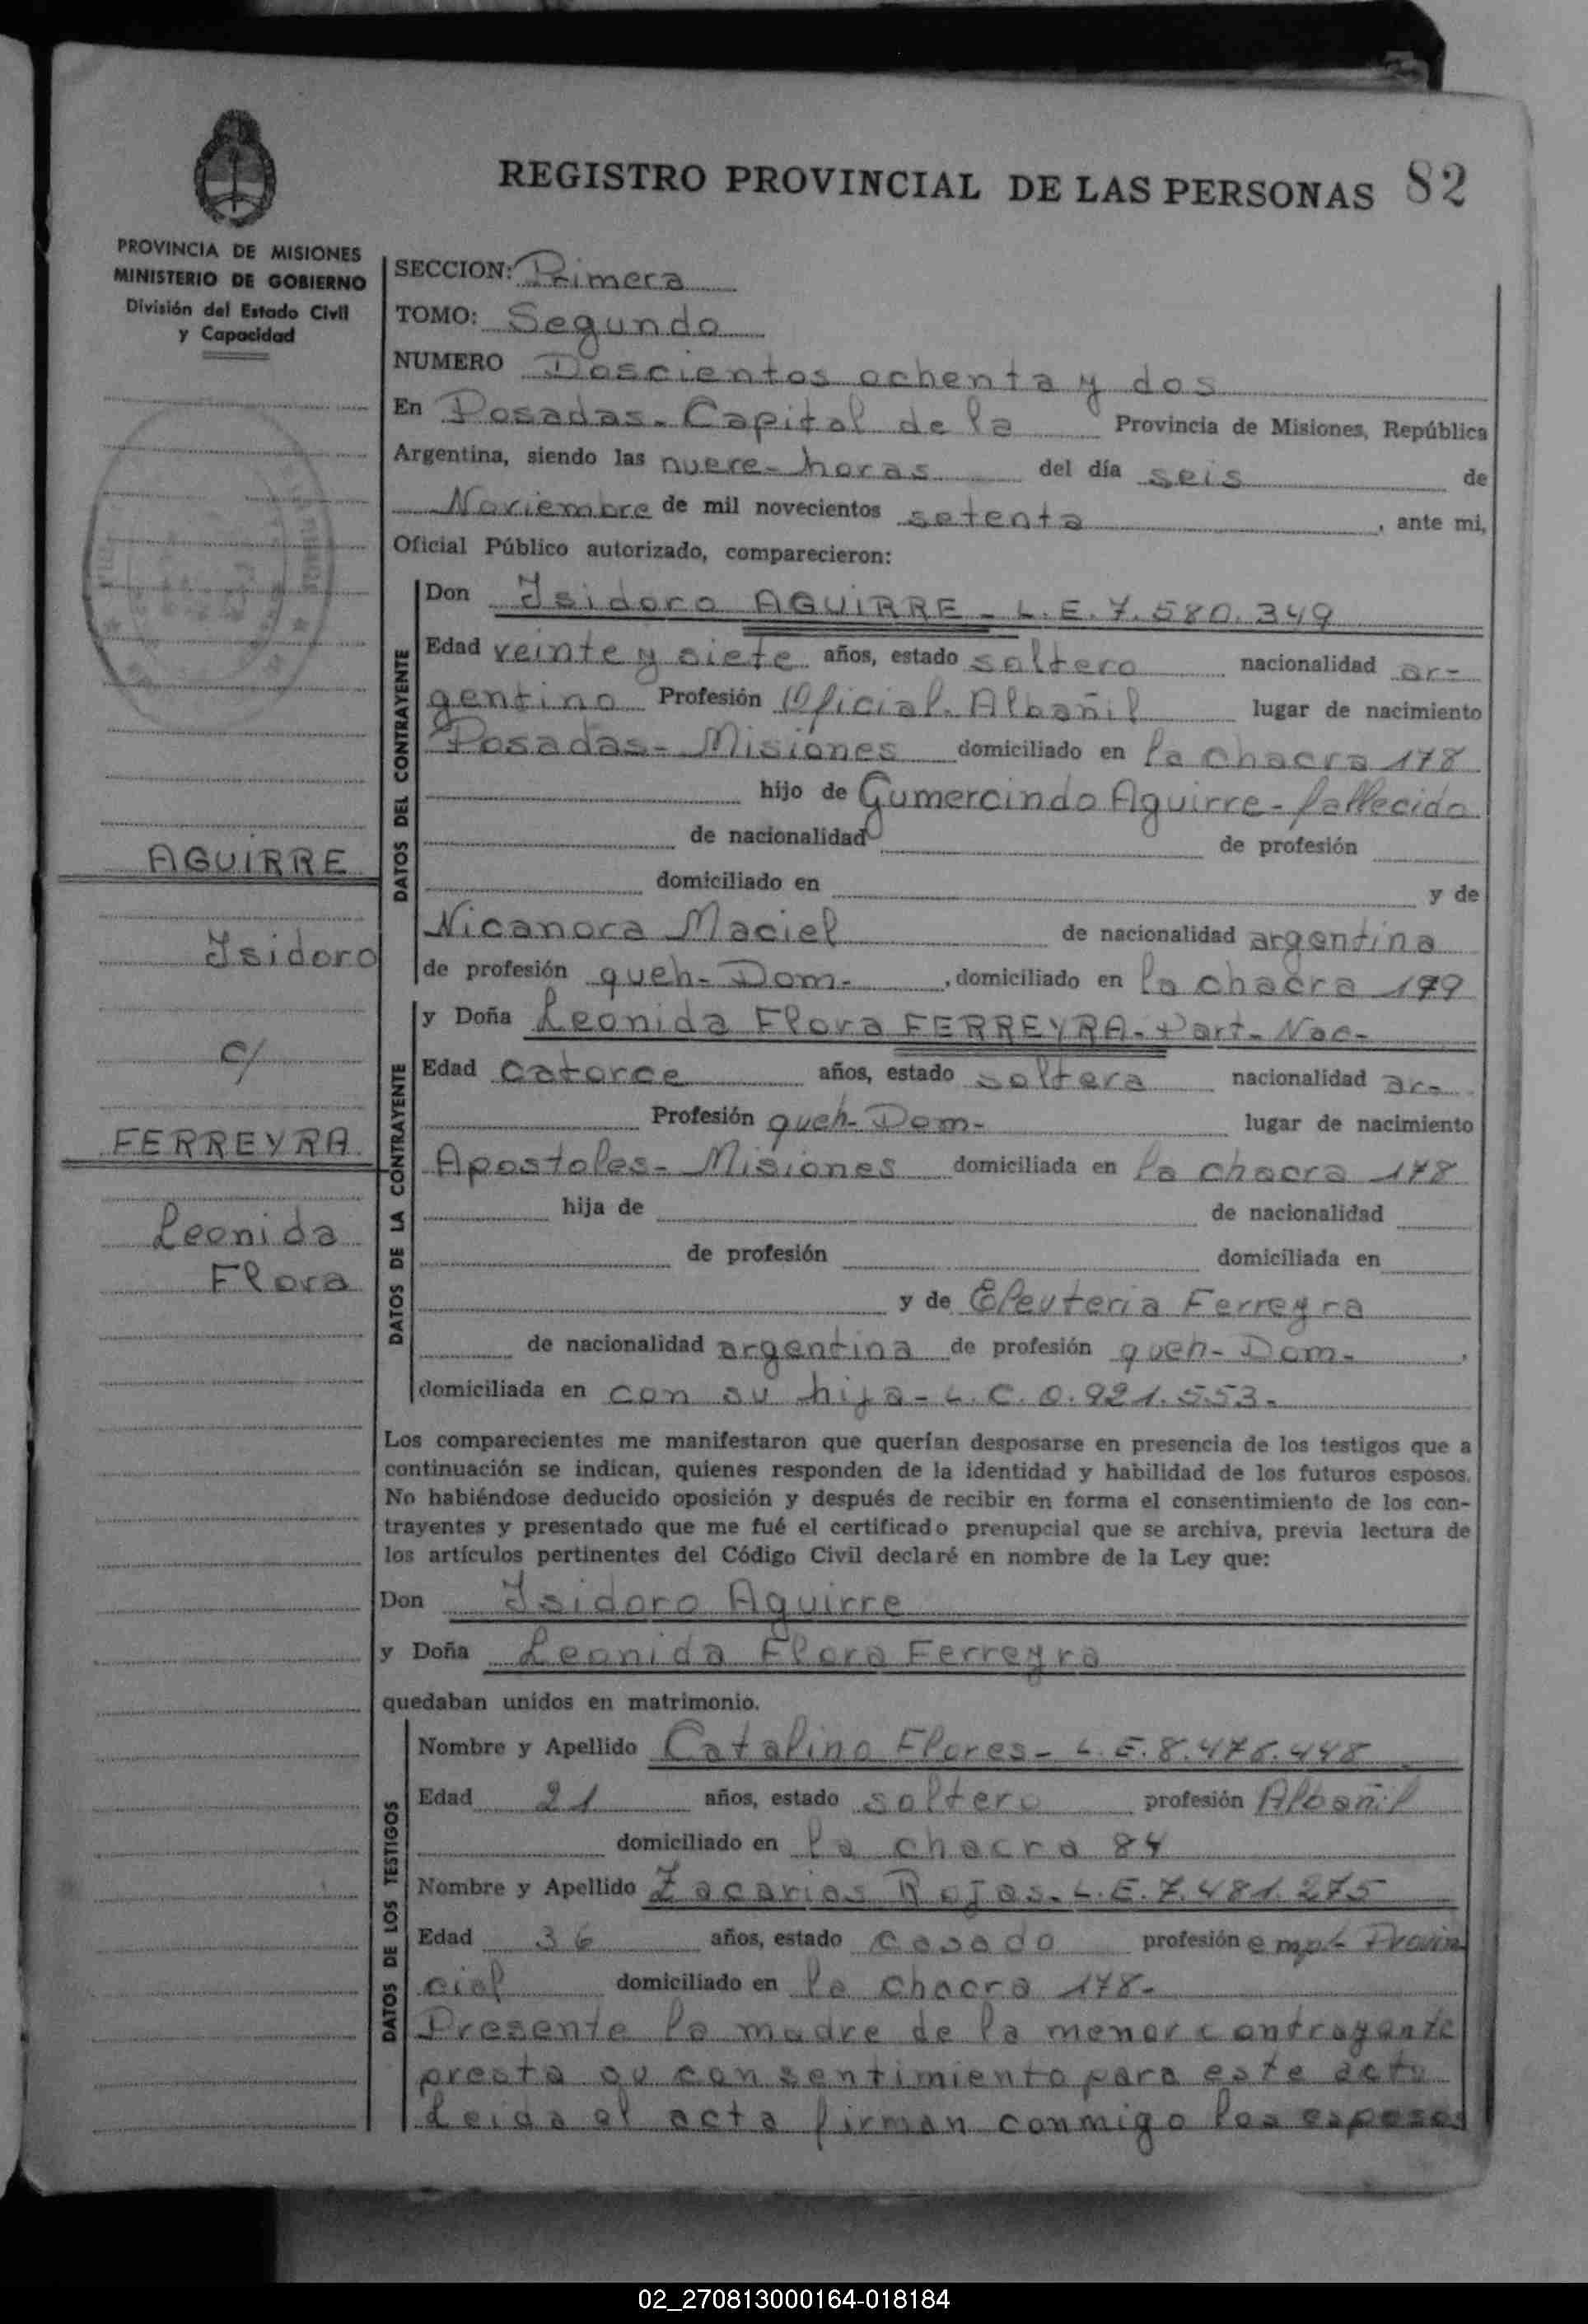 REGISTRO PROVINCIAL DE LAS PERSONAS 82
PROVINCIA DE MISIONES
MINISTERIO DE GOBIERNO
División del Estado Civil
y Capacidad
SECCION: Primera
TOMO: Segundo
NUMERO Doscientos ochenta y dos
En Posadas - Capital de la Provincia de Misiones, República
Argentina, siendo las nueve - horas del día seis de
Noviembre de mil novecientos setenta, ante mi,
Oficial Público autorizado, comparecieron:
DATOS DEL CONTRAYENTE
Don Isidoro AGUIRRE - L.E. 7.580.349
Edad veinte y siete años, estado soltero nacionalidad ar-
gentino Profesión Oficial - Albañil lugar de nacimiento
Posadas - Misiones domiciliado en la chacra 178
hijo de Gumercindo Aguirre - fallecido
de nacionalidad de profesión
domiciliado en y de
Nicanora Maciel de nacionalidad argentina
de profesión queh - Dom - , domiciliado en la chacra 179
AGUIRRE
Isidoro
c/
FERREYRA
Leonida
Flora
DATOS DE LA CONTRAYENTE
y Doña Leonida Flora FERREYRA - Part - Nac -
Edad catorce años, estado soltera nacionalidad ar-
Profesión queh - Dom - lugar de nacimiento
Apostoles - Misiones domiciliada en la chacra 178
hija de de nacionalidad
de profesión domiciliada en
y de Eleuteria Ferreyra
de nacionalidad argentina de profesión queh - Dom - ,
domiciliada en con su hija - L.C. 0.921.553 -
Los comparecientes me manifestaron que querían desposarse en presencia de los testigos que a
continuación se indican, quienes responden de la identidad y habilidad de los futuros esposos.
No habiéndose deducido oposición y después de recibir en forma el consentimiento de los con-
trayentes y presentado que me fué el certificado prenupcial que se archiva, previa lectura de
los artículos pertinentes del Código Civil declaré en nombre de la Ley que:
Don Isidoro Aguirre
y Doña Leonida Flora Ferreyra
quedaban unidos en matrimonio.
DATOS DE LOS TESTIGOS
Nombre y Apellido Catalino Flores - L.E. 8.476.448
Edad 21 años, estado soltero profesión Albañil
domiciliado en la chacra 84
Nombre y Apellido Zacarias Rojas - L.E. 7.481.275
Edad 36 años, estado casado profesión empl - Provin
cial domiciliado en la chacra 178 -
Presente la madre de la menor contrayente
presta su consentimiento para este acto
Leida el acta firman conmigo los esposos
02_270813000164-018184